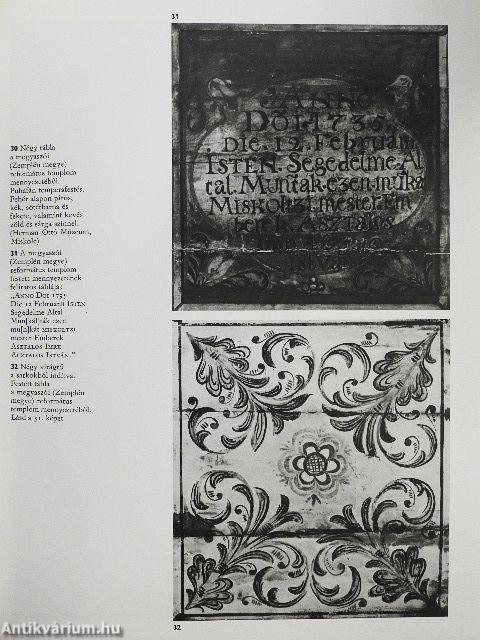 31
30 Négy tábla
a megyaszói
(Zemplén megye)
református templom
mennyezetéből.
Puhafán temperafestés.
Fehér alapon piros,
kék, sötétbarna és
fekete, valamint kevés
zöld és sárga színnel.
(Herman Ottó Múzeum,
Miskolc)
31 A megyaszói
(Zemplén megye)
református templom
festett mennyezetének
feliratos táblája:
„ANNO DOI 1735
Die 12 Februarii ISTEN
Segedelme Altal
Mun[k]álják ezen
mu[n]kát MISKOLTZI
mester Emberek
ASZTALOS IMRE
ASZTALOS ISTVÁN.”
32 Négy virágtő
a sarkokból indítva.
Festett tábla
a megyaszói (Zemplén
megye) református
templom mennyezetéből.
Lásd a 31. képet
ANNO
DOI.1735.
Die. 12. Februarii
ISTEN. Segedelme. Al
tal. Munják. ezen. muka
MISKOLtzi. mester. Em
berek. ASZtALOS
32
Antikvárium.hu